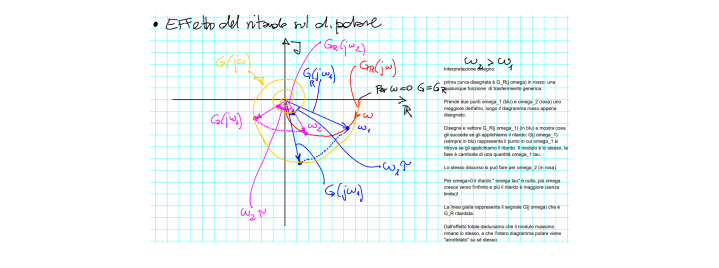 • Effetto del ritardo sul d. polare
G_R(jω₂)
J
ω₂ > ω₁
G(jω)
G_R(jω₁)
G_R(jω)
Per ω=0 G=G_R
ω
R
G(jω₁)
ω₂
ω₁
ω₁τ
G(jω₁)
ω₂τ
Interpretazione disegno:
prima curva disegnata è G_R(j omega) in rosso: una
qualunque funzione di trasferimento generica.
Prende due punti omega_1 (blu) e omega_2 (rosa) uno
maggiore dell'altro, lungo il diagramma rosso appena
disegnato.
Disegna e vettore G_R(j omega_1) (in blu) e mostra cosa
gli succede se gli applichiamo il ritardo: G(j omega_1)
(sempre in blu) rappresenta il punto in cui omega_1 si
ritrova se gli applichiamo il ritardo. Il modulo è lo stesso, la
fase è cambiata di una quantità omega_1 tau.
Lo stesso discorso si può fare per omega_2 (in rosa).
Per omega=0 il ritardo " omega tau" è nullo, più omega
cresce verso l'infinito e più il ritardo è maggiore (senza
limite)!
La linea gialla rappresenta il segnale G(j omega) che è
G_R ritardata.
Dall'effetto totale deduciamo che il modulo massimo
rimane lo stesso, e che l'intero diagramma polare viene
"arrotolato" su sé stesso